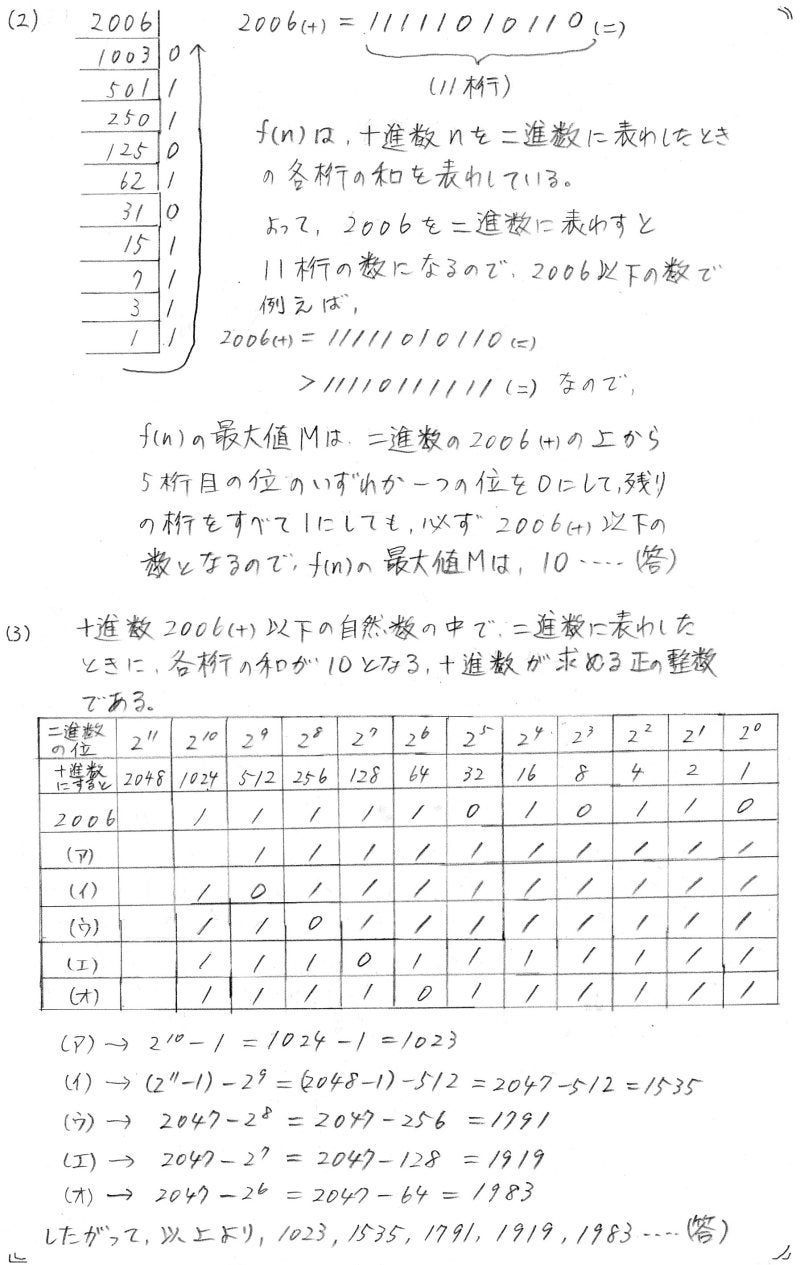 (2)
2006
1003 0
501 1
250 1
125 0
62 1
31 0
15 1
7 1
3 1
1 1
2006(十) = 11111010110(二)
(11桁)
f(n)は、十進数nを二進数に表わしたとき
の各桁の和を表わしている。
よって、2006を二進数に表わすと
11桁の数になるので、2006以下の数で
例えば、
2006(十) = 11111010110(二)
> 11110111111(二) なので、
f(n)の最大値Mは、二進数の2006(十)の上から
5桁目の位のいずれか一つの位を0にして、残り
の桁をすべて1にしても、必ず2006(十)以下の
数となるので、f(n)の最大値Mは、10 ‥‥(答)
(3)
十進数2006(十)以下の自然数の中で、二進数に表わした
ときに、各桁の和が10となる、十進数が求める正の整数
である。
二進数の位 2¹¹ 2¹⁰ 2⁹ 2⁸ 2⁷ 2⁶ 2⁵ 2⁴ 2³ 2² 2¹ 2⁰
十進数にすると 2048 1024 512 256 128 64 32 16 8 4 2 1
2006 1 1 1 1 1 0 1 0 1 1 0
(ア) 1 1 1 1 1 1 1 1 1 1
(イ) 1 0 1 1 1 1 1 1 1 1 1
(ウ) 1 1 0 1 1 1 1 1 1 1 1
(エ) 1 1 1 0 1 1 1 1 1 1 1
(オ) 1 1 1 1 0 1 1 1 1 1 1
(ア) → 2¹⁰-1 = 1024-1 = 1023
(イ) → (2¹¹-1)-2⁹ = (2048-1)-512 = 2047-512 = 1535
(ウ) → 2047-2⁸ = 2047-256 = 1791
(エ) → 2047-2⁷ = 2047-128 = 1919
(オ) → 2047-2⁶ = 2047-64 = 1983
したがって、以上より、1023, 1535, 1791, 1919, 1983 ‥‥(答)